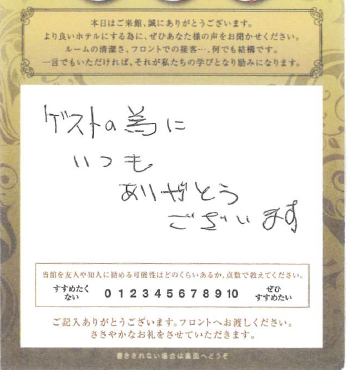 本日はご来館、誠にありがとうございます。
より良いホテルにする為に、ぜひあなた様の声をお聞かせください。
ルームの清潔さ、フロントでの接客…、何でも結構です。
一言でもいただければ、それが私たちの学びとなり励みになります。
ゲストの為に
いつも
ありがとう
ございます
当館を友人や知人に勧める可能性はどのくらいあるか、点数で教えてください。
すすめたく
ない
0 1 2 3 4 5 6 7 8 9 10
ぜひ
すすめたい
ご記入ありがとうございます。フロントへお渡しください。
ささやかなお礼をさせていただきます。
書ききれない場合は裏面へどうぞ